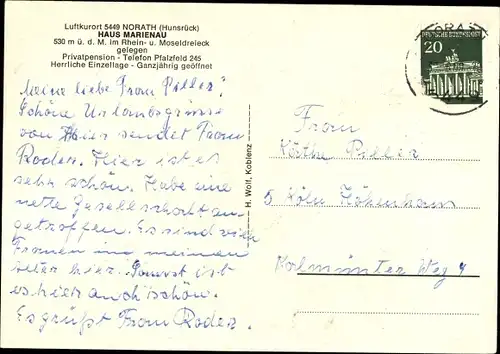 Luftkurort 5449 NORATH (Hunsrück)
HAUS MARIENAU
530 m ü. d. M. im Rhein- u. Moseldreieck
gelegen
Privatpension - Telefon Pfalzfeld 245
Herrliche Einzellage - Ganzjährig geöffnet
Meine liebe Frau Piller!
Schöne Urlaubsgrüsse
von Hier sendet Frau
Roder. Hier ist es
sehr schön. Habe eine
nette Gesellschaft an-
getroffen. Es sind viele
Frauen in meinem
Alter hier. Sonst ist
es hier auch schön.
Es grüßt Frau Roder.
H. Wolf, Koblenz
DEUTSCHE BUNDESPOST
20
Frau
Käthe Piller
5 Köln Höhenhaus
Weg 4